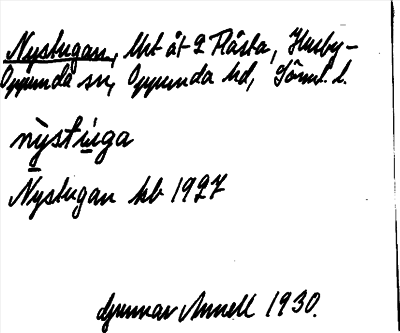 Nystugan, lht åt 2 Flåsta, Husby-
Oppunda sn, Oppunda hd, Söml. l.
nystuga
Nystugan kb 1927
Gunnar Annell 1930.